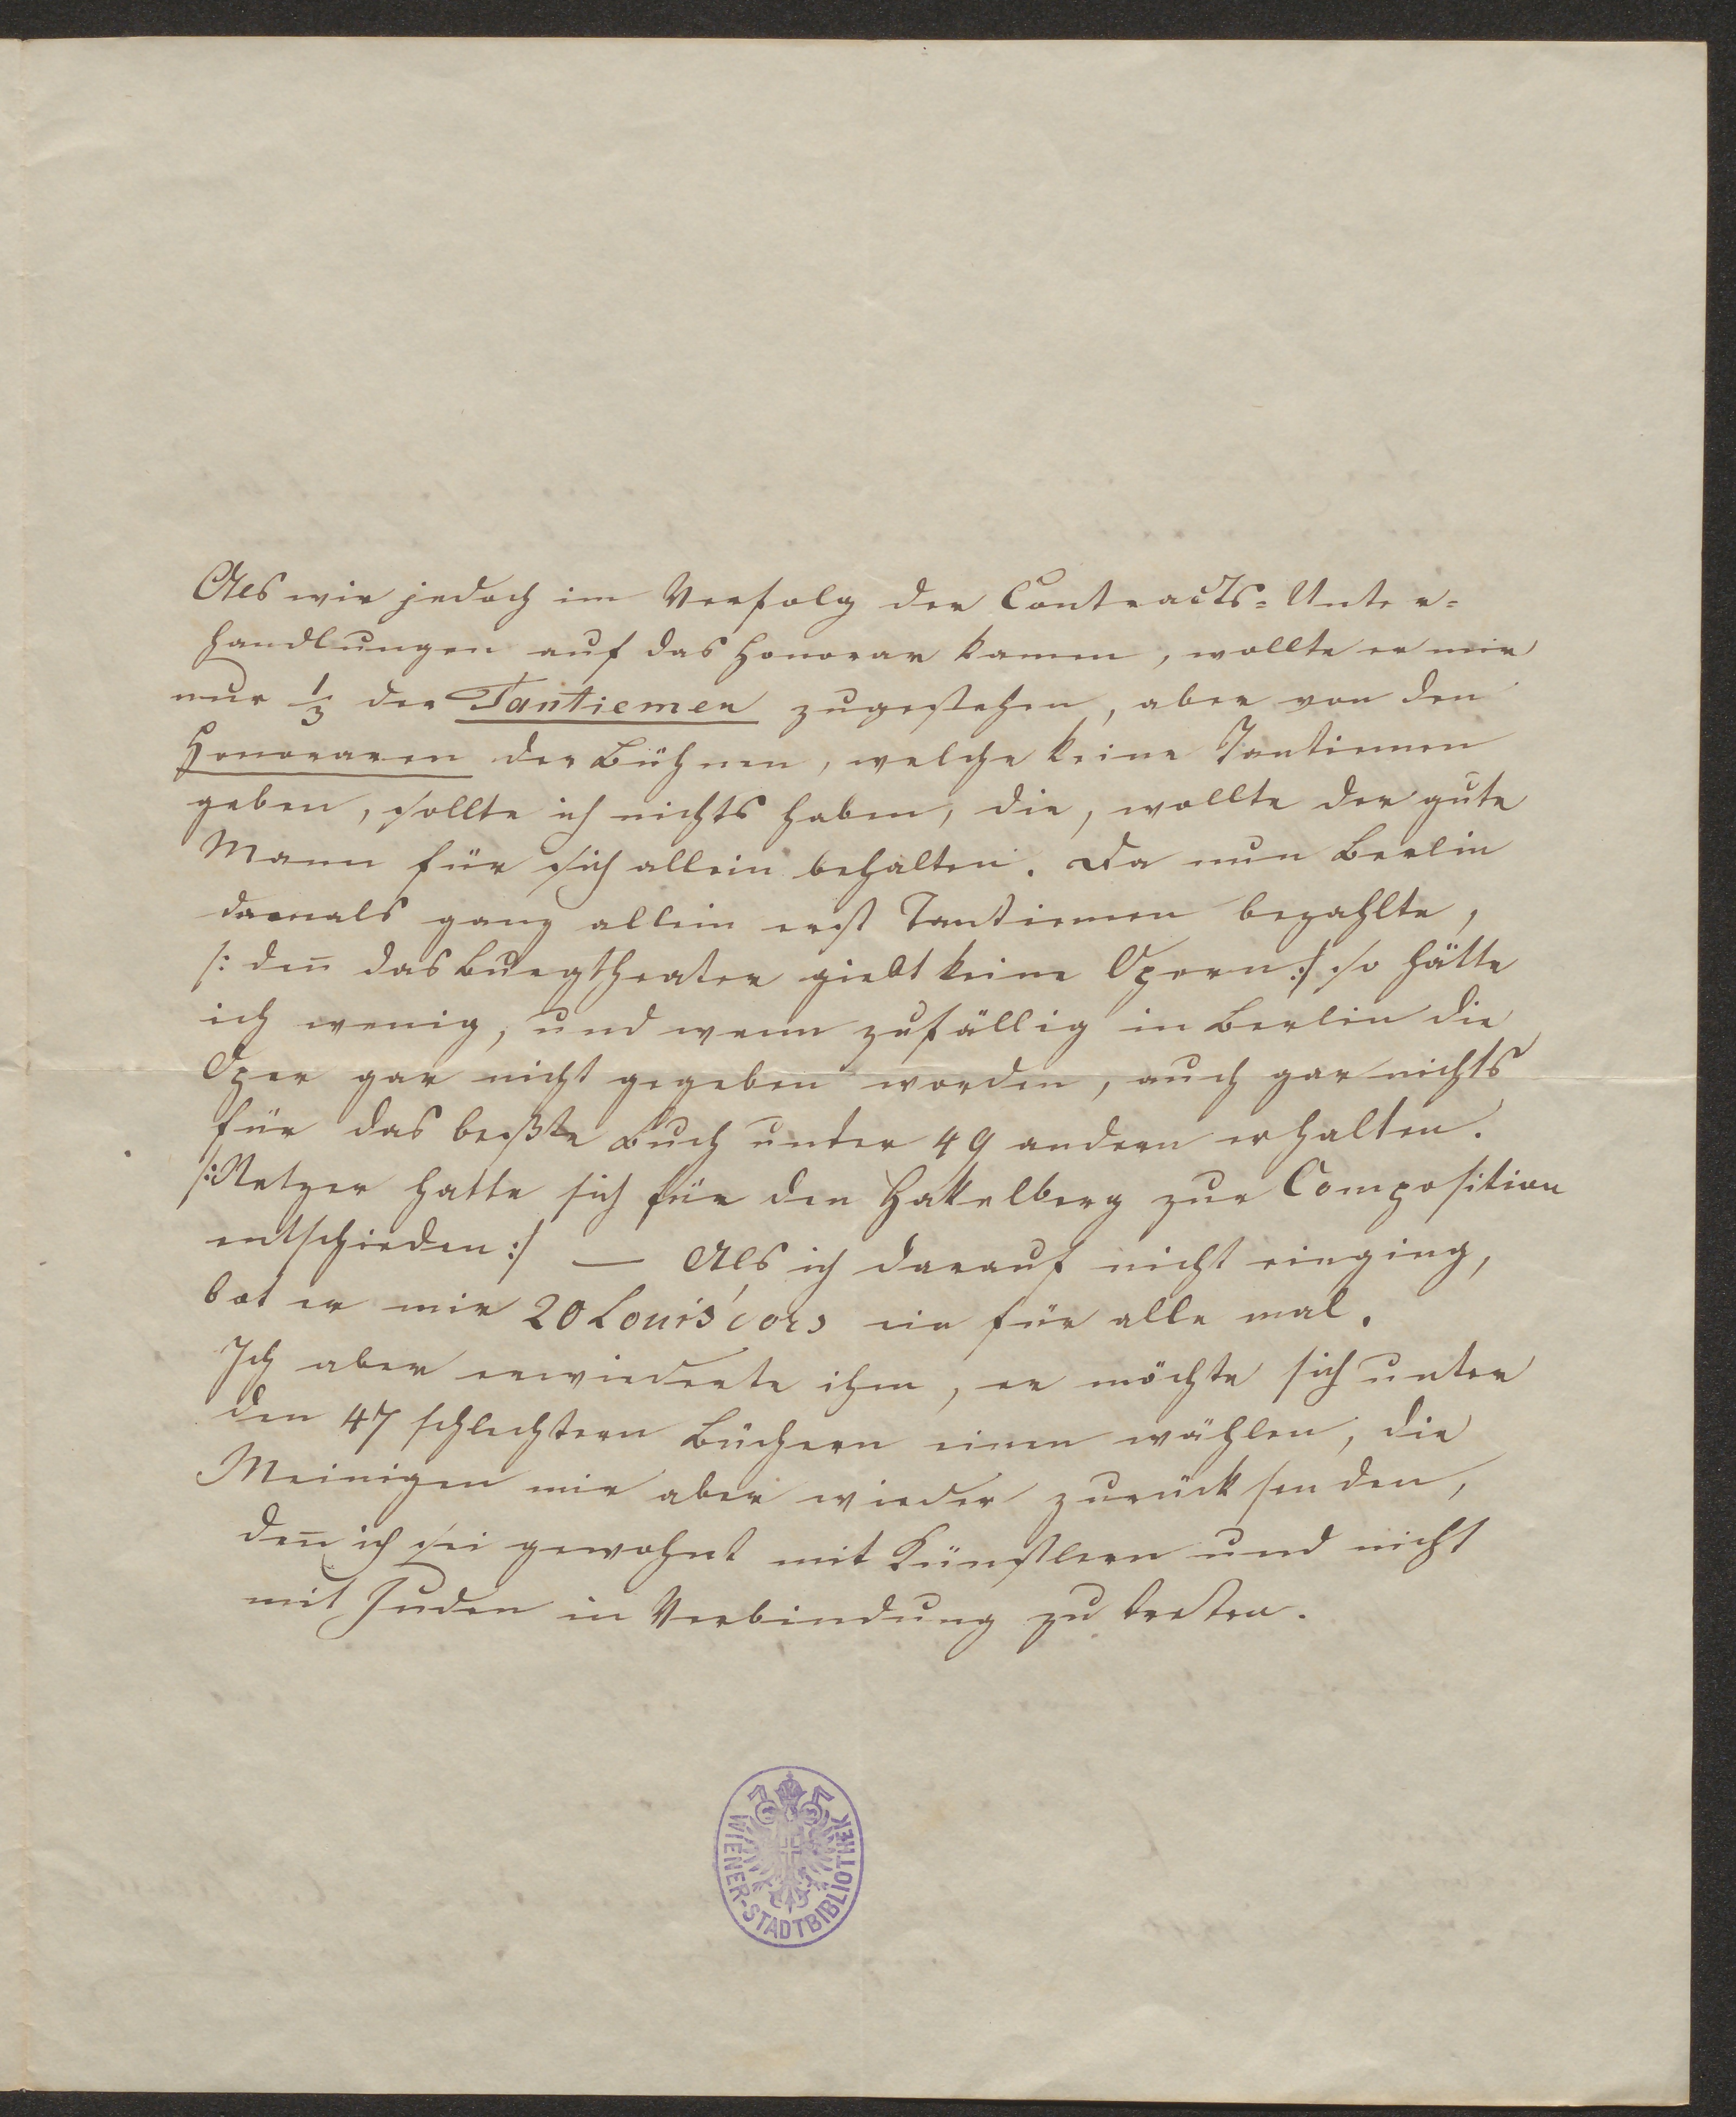 Als wir jedoch im Verfolg der Contracts=Unter=
handlungen auf das Honorar kamen, wollte er mir
nur 1/3 der Tantiemen zugestehen, aber von den
Honoraren der Bühnen, welche keine Tantiemen
geben, sollte ich nichts haben, die, wollte der gute
Mann für sich allein behalten. Da nun Berlin
damals ganz allein erst Tantiemen bezahlte,
/: den̄ das Burgtheater giebt keine Opern :/ so hätte
ich wenig, und wenn zufällig in Berlin die
Oper gar nicht gegeben worden, auch gar nichts
für das beßte Buch unter 49 andern erhalten.
/: Netzer hatte sich für den Hakelberg zur Composition
entschieden :/ — Als ich darauf nicht einging,
bot er mir 20 Louis'dors ein für alle mal.
Ich aber erwiederte ihm, er möchte sich unter
den 47 schlechtern Büchern einen wählen, die
Meinigen mir aber wieder zurück senden,
den̄ ich sei gewohnt mit Künstlern und nicht
mit Juden in Verbindung zu treten.
WIENER-STADTBIBLIOTHEK